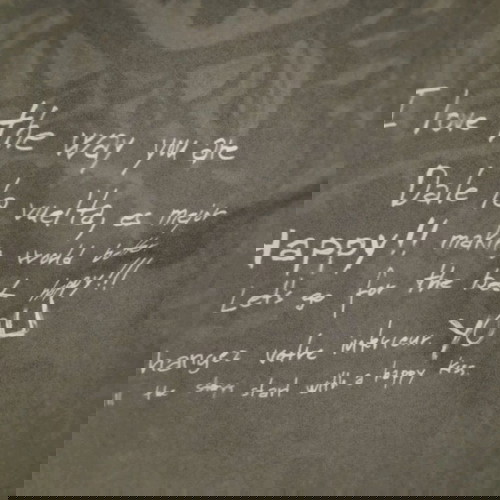 I love
the way you are
Dale la vuelta, es mejor
Happy!!
making world better
Let's go for the best
YOU
hangez votre interieur.
the story start with a happy kiss.